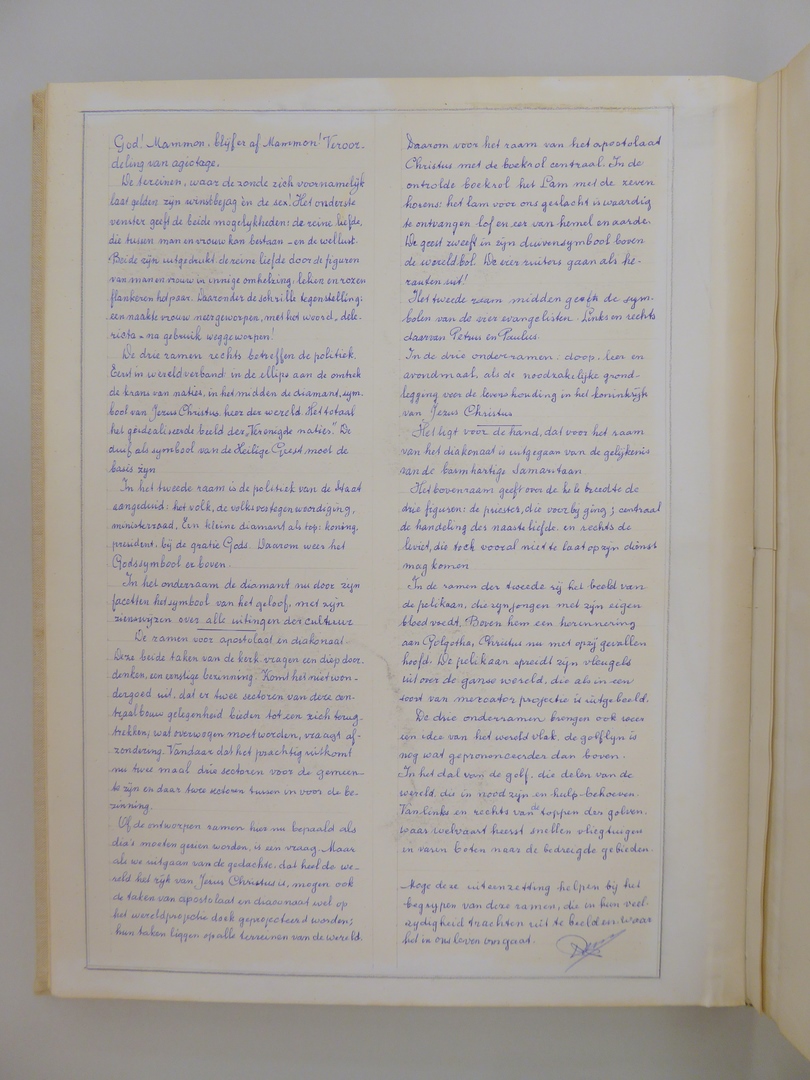 God! Mammon, blijf er af Mammon! Veroor-
deling van agiotage.
De terreinen, waar de zonde zich voornamelijk
laat gelden zijn winstbejag en de sex! Het onderste
venster geeft de beide mogelijkheden: de reine liefde,
die tussen man en vrouw kan bestaan - en de wellust.
Beide zijn uitgedrukt: de reine liefde door de figuren
van man en vrouw in innige omhelzing; leliën en rozen
flankeren het paar. Daaronder de schrille tegenstelling:
een naakte vrouw neergeworpen, met het woord „dele-
ricta - na gebruik weggeworpen!
De drie ramen rechts betreffen de politiek.
Eerst in wereldverband: in de ellips aan de omtrek
de krans van naties, in het midden de diamant, sym-
bool van Jezus Christus, heer der wereld. Het totaal
het geïdealiseerde beeld der „Verenigde naties". De
duif als symbool van de Heilige Geest moet de
basis zijn
In het tweede raam is de politiek van de Staat
aangeduid: het volk, de volksvertegenwoordiging,
ministerraad. Een kleine diamant als top: koning,
president, bij de gratie Gods. Daarom weer het
Godssymbool er boven.
In het onderraam de diamant nu door zijn
facetten het symbool van het geloof, met zijn
zienswijzen over alle uitingen der cultuur
De ramen voor apostolaat en diakonaat.
Deze beide taken van de kerk vragen een diep door-
denken, een ernstige bezinning. Komt het niet won-
dergoed uit, dat er twee sectoren van deze cen-
traalbouw gelegenheid bieden tot een zich terug-
trekken; wat overwogen moet worden, vraagt af-
zondering. Vandaar dat het prachtig uitkomt
nu twee maal drie sectoren voor de gemeen-
te zijn en daar twee sectoren tussen in voor de be-
zinning.
Of de ontworpen ramen hier nu bepaald als
dia's moeten gezien worden, is een vraag. Maar
als we uitgaan van de gedachte, dat heel de we-
reld het rijk van Jezus Christus is, mogen ook
de taken van apostolaat en diaconaat wel op
het wereldprojectie doek geprojecteerd worden;
hun taken liggen op alle terreinen van de wereld.
Daarom voor het raam van het apostolaat
Christus met de boekrol centraal. In de
ontrolde boekrol het Lam met de zeven
horens: het lam voor ons geslacht is waardig
te ontvangen lof en eer van hemel en aarde.
De geest zweeft in zijn duivensymbool boven
de wereldbol. De vier ruiters gaan als he-
rauten uit!
Het tweede raam midden geeft de sym-
bolen van de vier evangelisten. Links en rechts
daarvan Petrus en Paulus.
In de drie onderramen: doop, leer en
avondmaal, als de noodzakelijke grond-
legging voor de levenshouding in het koninkrijk
van Jezus Christus
Het ligt voor de hand, dat voor het raam
van het diakonaat is uitgegaan van de gelijkenis
van de barmhartige Samaritaan
Het bovenraam geeft over de hele breedte de
drie figuren: de priester, die voorbij ging; centraal
de handeling des naaste liefde. en rechts de
leviet, die toch vooral niet te laat op zijn dienst
mag komen
In de ramen der tweede rij het beeld van
de pelikaan, die zijn jongen met zijn eigen
bloed voedt. Boven hem een herinnering
aan Golgotha, Christus nu met opzij gevallen
hoofd. De pelikaan spreidt zijn vleugels
uit over de ganse wereld, die als in een
soort van mercator projectie is uitgebeeld.
De drie onderramen brengen ook weer
een idee van het wereld vlak. de golflijn is
nog wat geprononceerder dan boven.
In het dal van de golf. die delen van de
wereld, die in nood zijn en hulp behoeven.
Van links en rechts van de toppen der golven.
waar welvaart heerst snellen vliegtuigen
en varen boten naar de bedreigde gebieden.
Moge deze uiteenzetting helpen bij het
begrijpen van deze ramen, die in hun veel-
zijdigheid trachten uit te beelden, waar
het in ons leven om gaat.